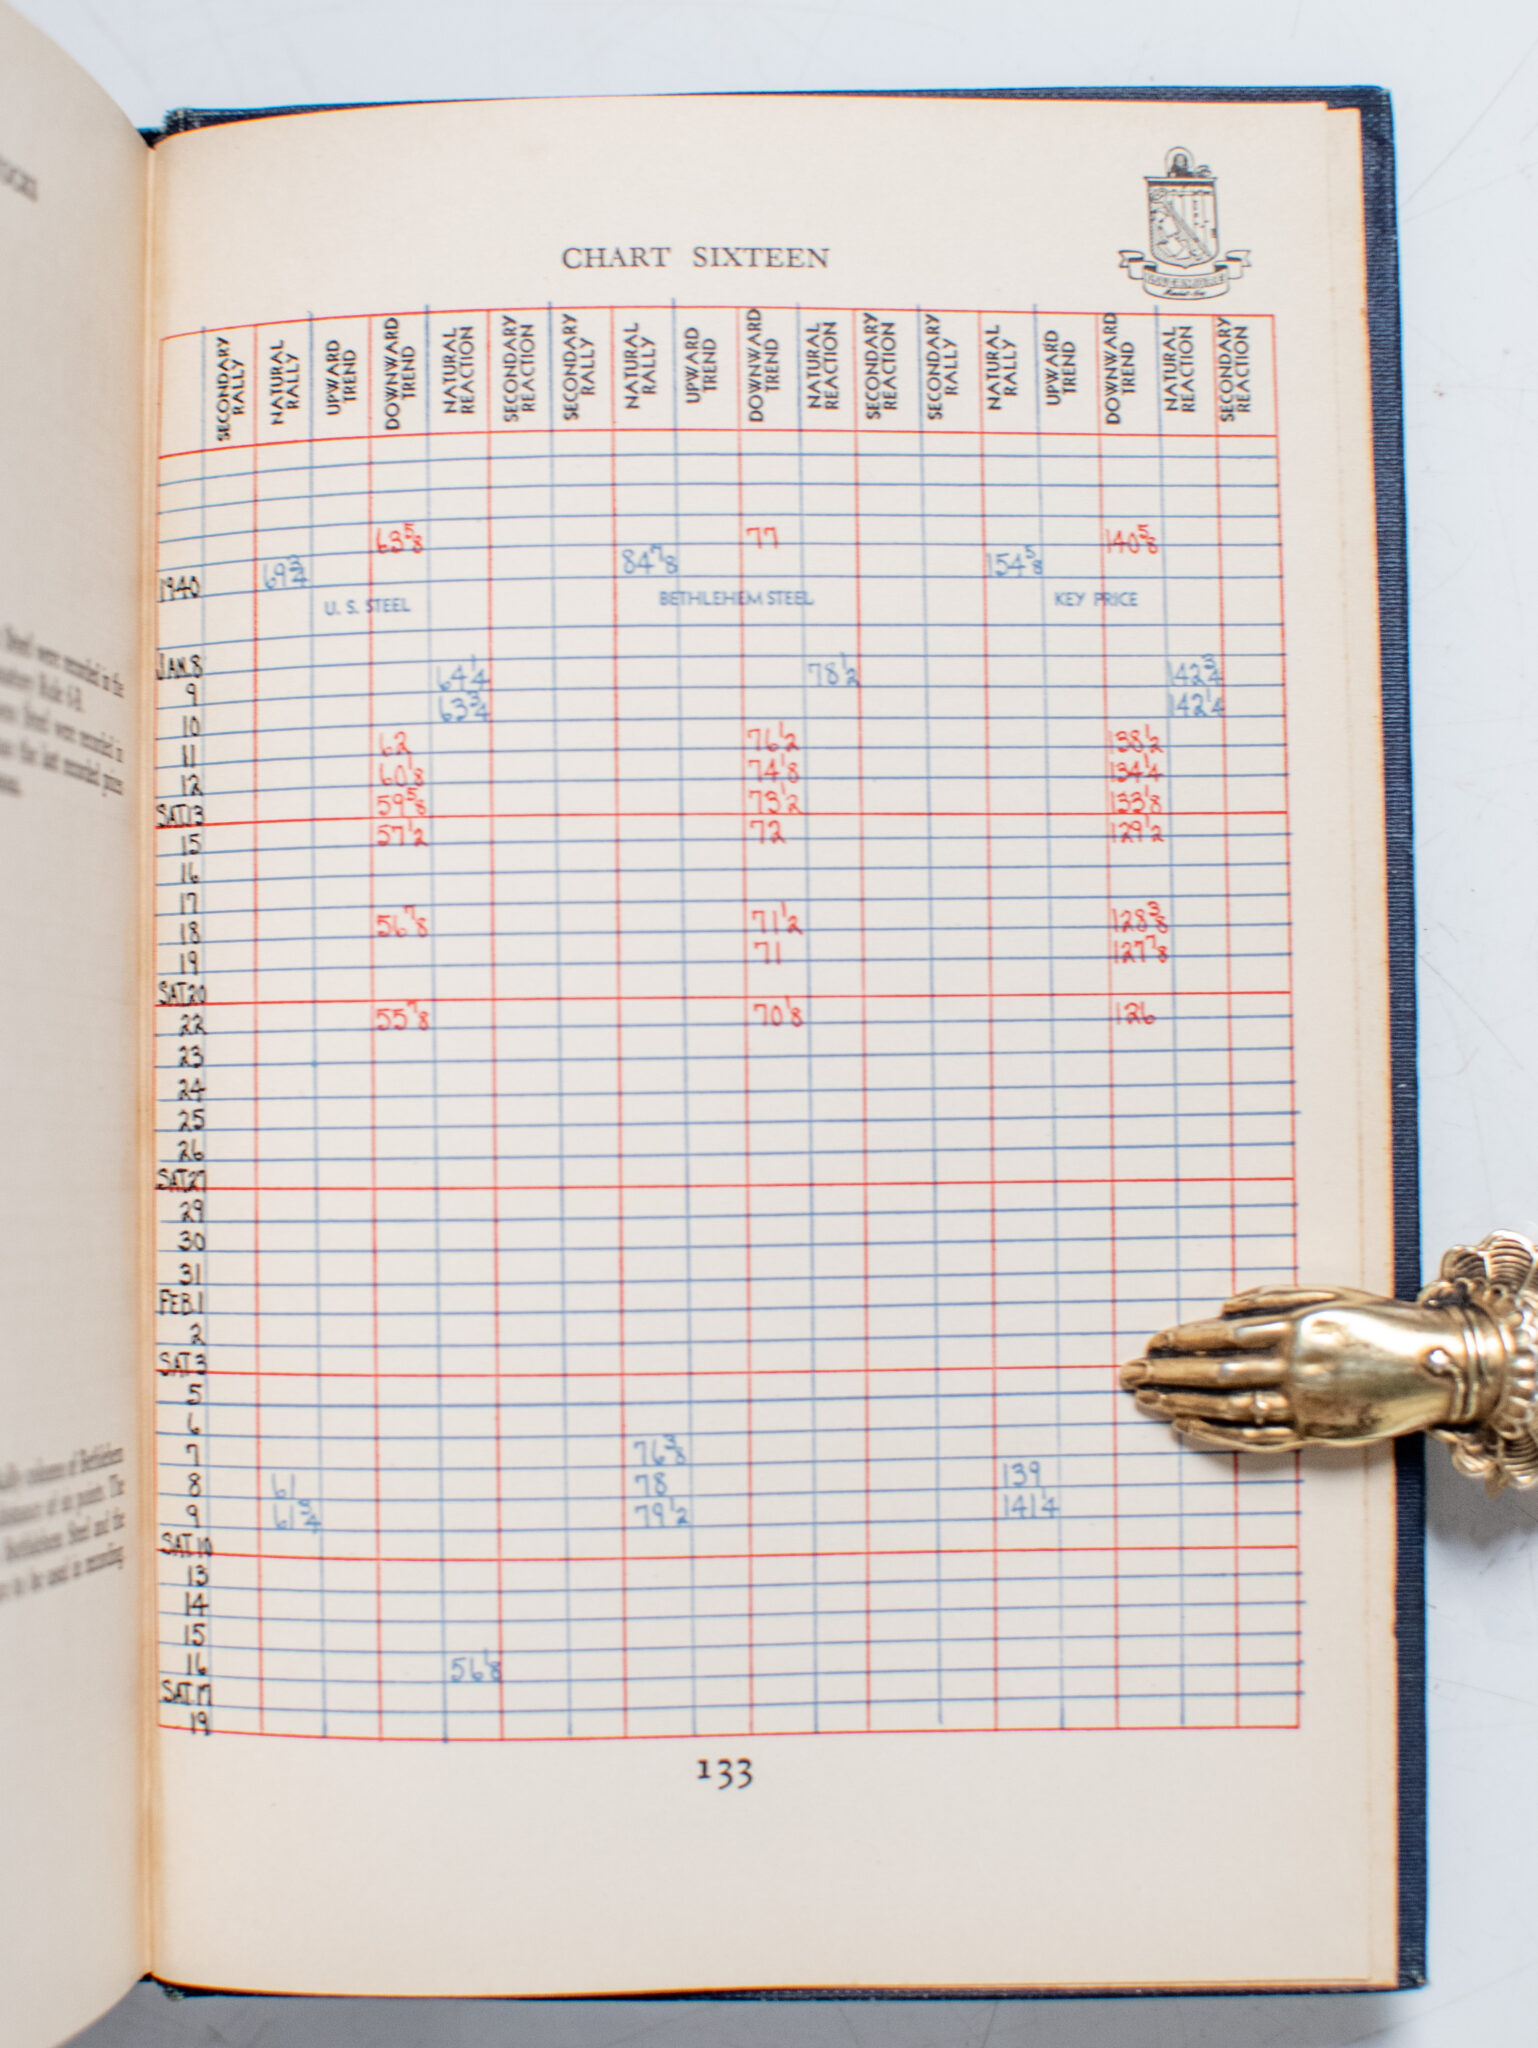 CHART SIXTEEN
SECONDARY RALLY NATURAL RALLY UPWARD TREND DOWNWARD TREND NATURAL REACTION SECONDARY REACTION SECONDARY RALLY NATURAL RALLY UPWARD TREND DOWNWARD TREND NATURAL REACTION SECONDARY REACTION SECONDARY RALLY NATURAL RALLY UPWARD TREND DOWNWARD TREND NATURAL REACTION SECONDARY REACTION
63 5/8 77 140 5/8
1940 69 3/4 84 7/8 154 5/8
U. S. STEEL BETHLEHEM STEEL KEY PRICE
JAN. 8 64 1/4 78 1/2 142 3/4
9 63 3/4 142 1/4
10
11 62 76 1/2 138 1/2
12 60 1/8 74 1/8 134 1/4
SAT.13 59 5/8 73 1/2 133 1/8
15 57 1/2 72 129 1/2
16
17
18 56 7/8 71 1/2 128 3/8
19 71 127 7/8
SAT.20
22 55 7/8 70 1/8 126
23
24
25
26
SAT.27
29
30
31
FEB.1
2
SAT.3
5
6
7 76 3/8
8 61 78 139
9 61 3/4 79 1/2 141 1/4
SAT.10
13
14
15
16 56 1/8
SAT.17
19
133
Steel were recorded in the
Rule 6-B.
Steel were recorded in
the last recorded prices
column of Bethlehem
distance of six points. The
Bethlehem Steel and the
to be used in recording